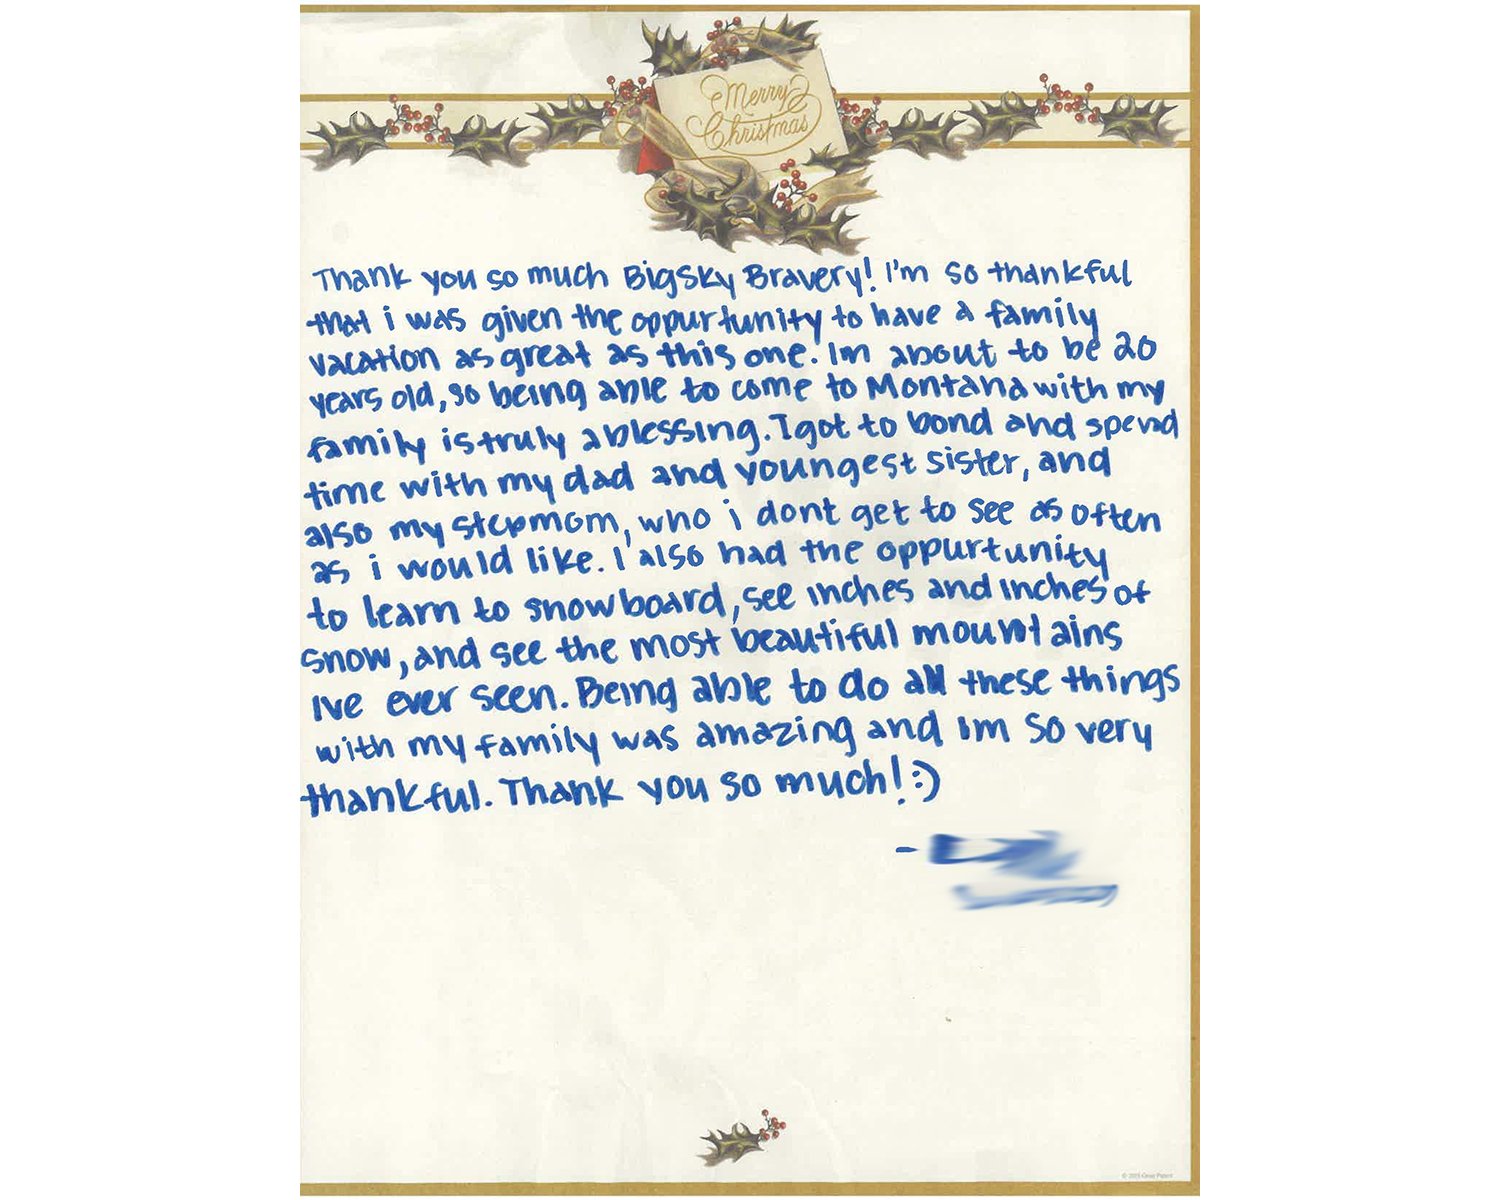 Merry
Christmas
Thank you so much Big Sky Bravery! I'm so thankful
that i was given the oppurtunity to have a family
vacation as great as this one. Im about to be 20
years old, so being able to come to Montana with my
family is truly a blessing. I got to bond and spend
time with my dad and youngest sister, and
also my stepmom, who i dont get to see as often
as i would like. I also had the oppurtunity
to learn to snowboard, see inches and inches of
snow, and see the most beautiful mountains
Ive ever seen. Being able to do all these things
with my family was amazing and Im so very
thankful. Thank you so much! :)
-